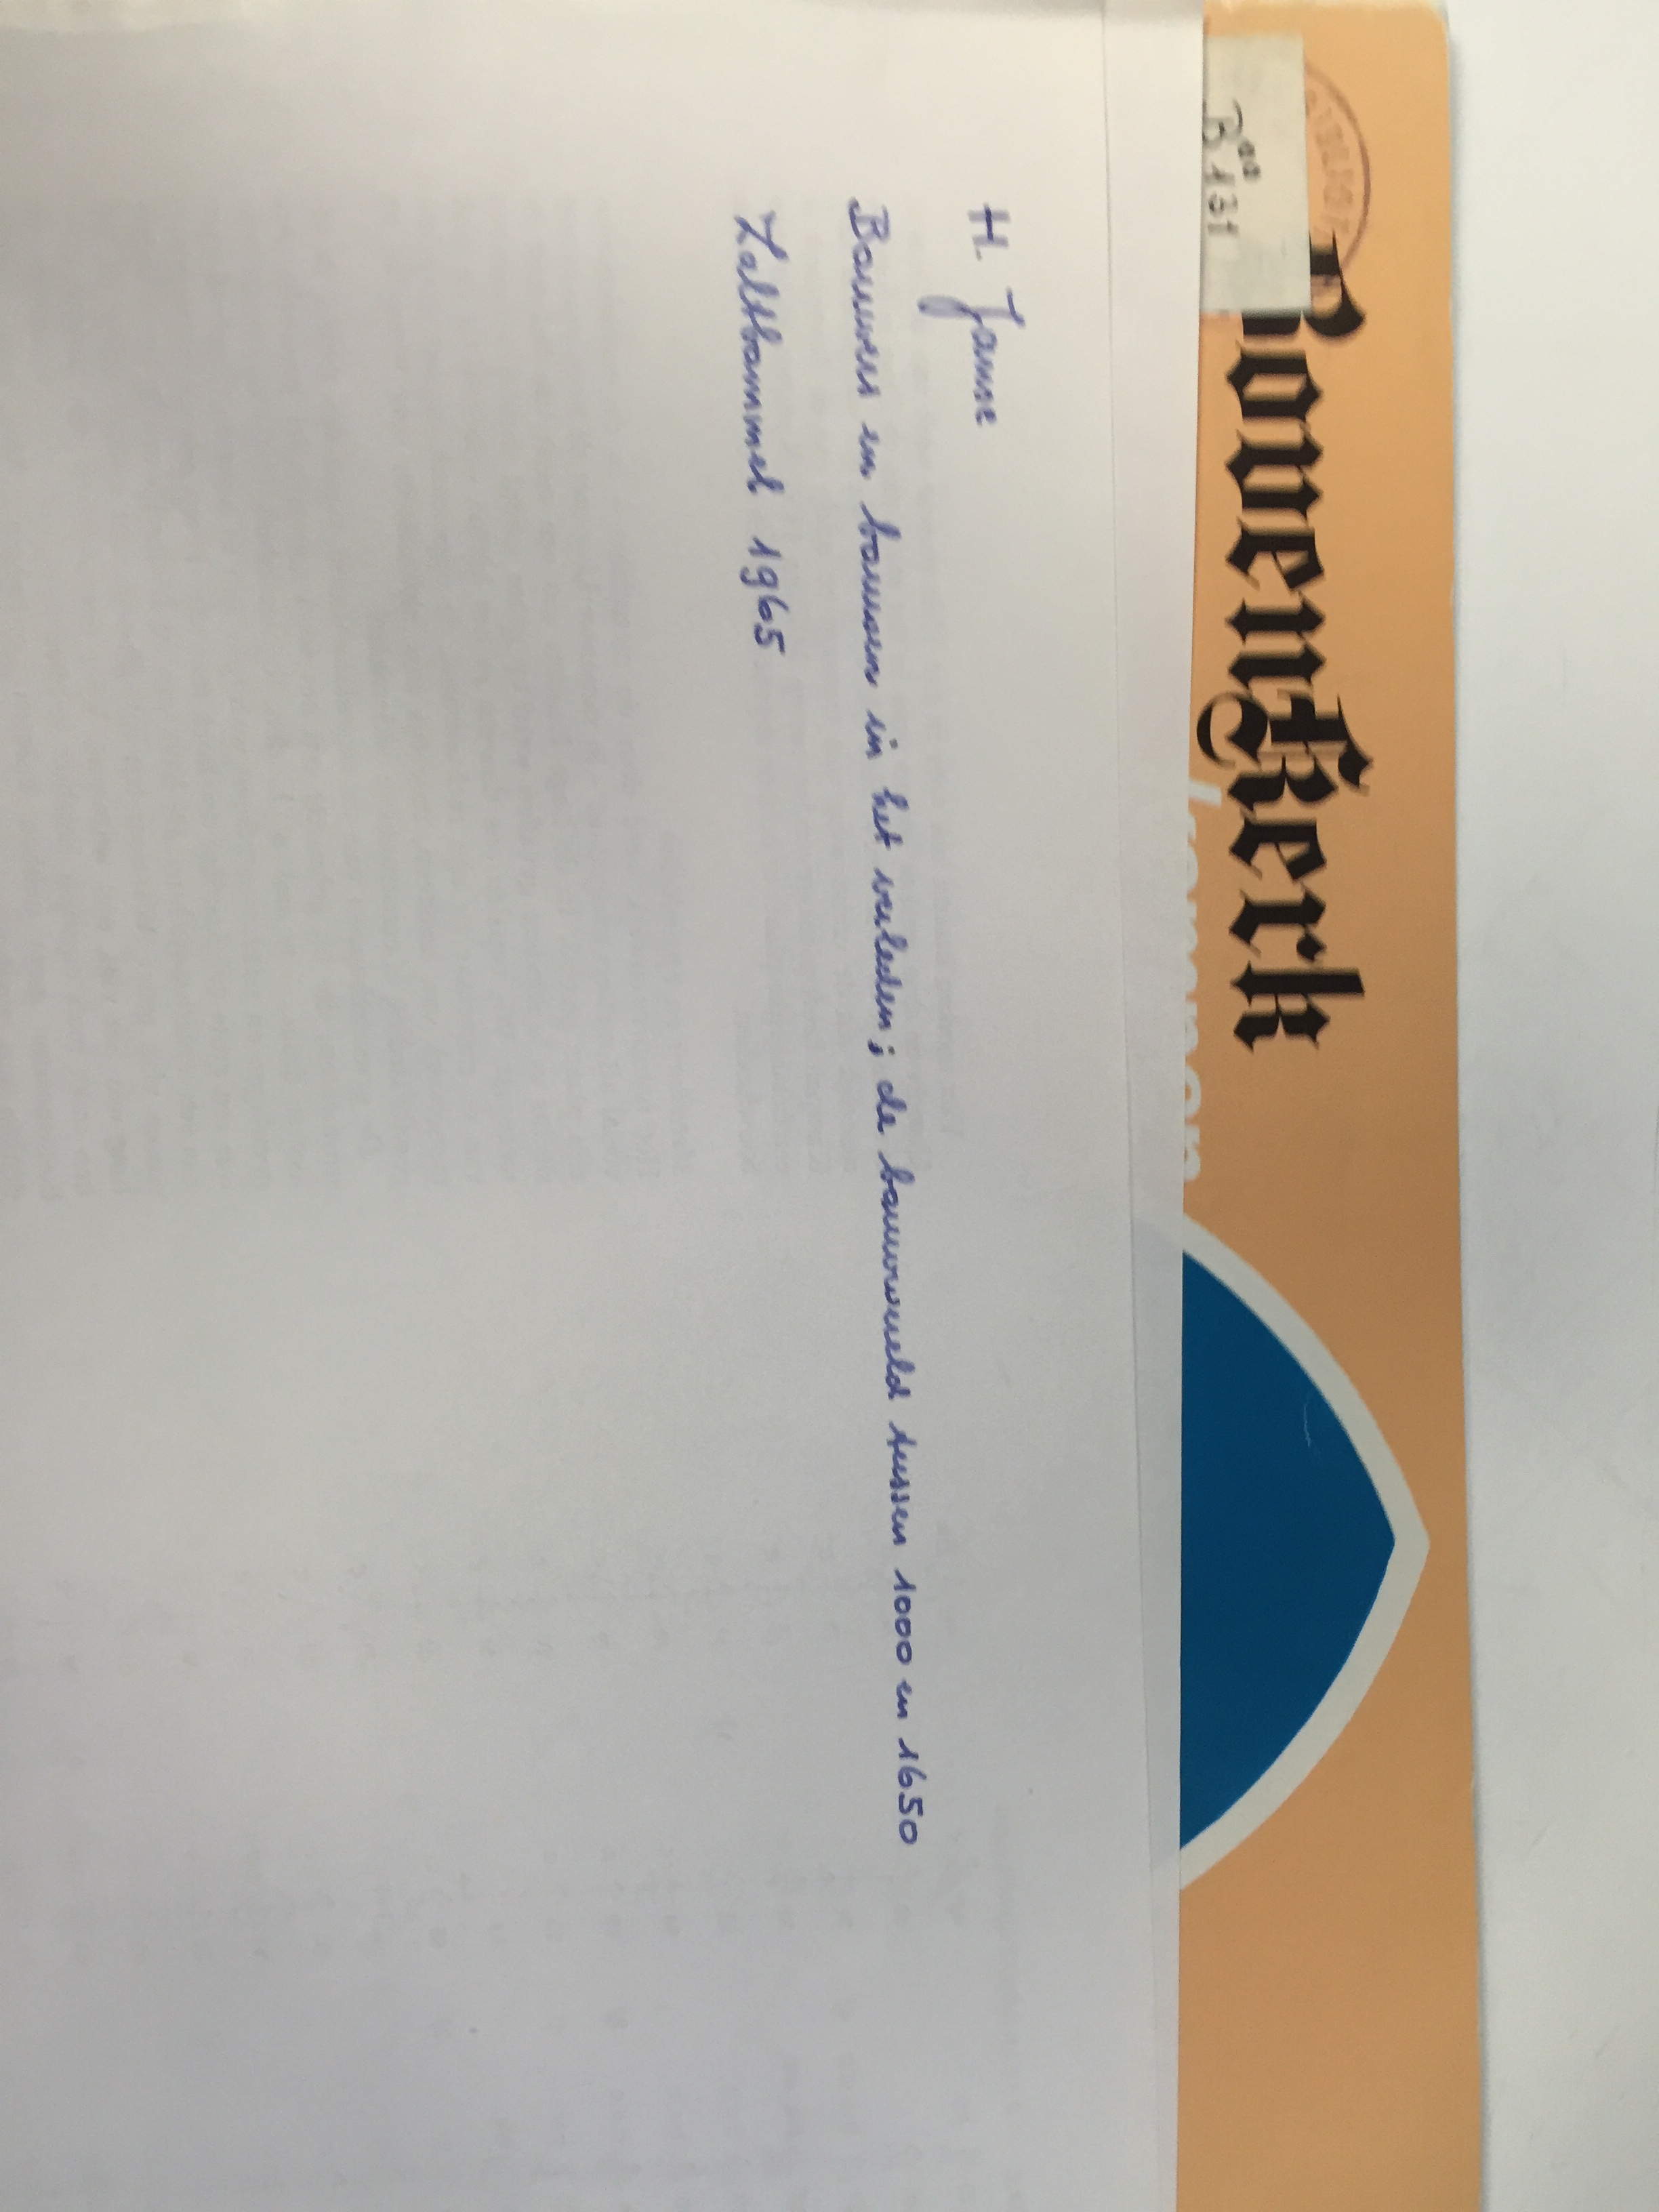 Bovenkerk
Baa
B131
H. Janse
Bouwers en bouwen in het verleden; de bouwwereld tussen 1000 en 1650
Zaltbommel 1965